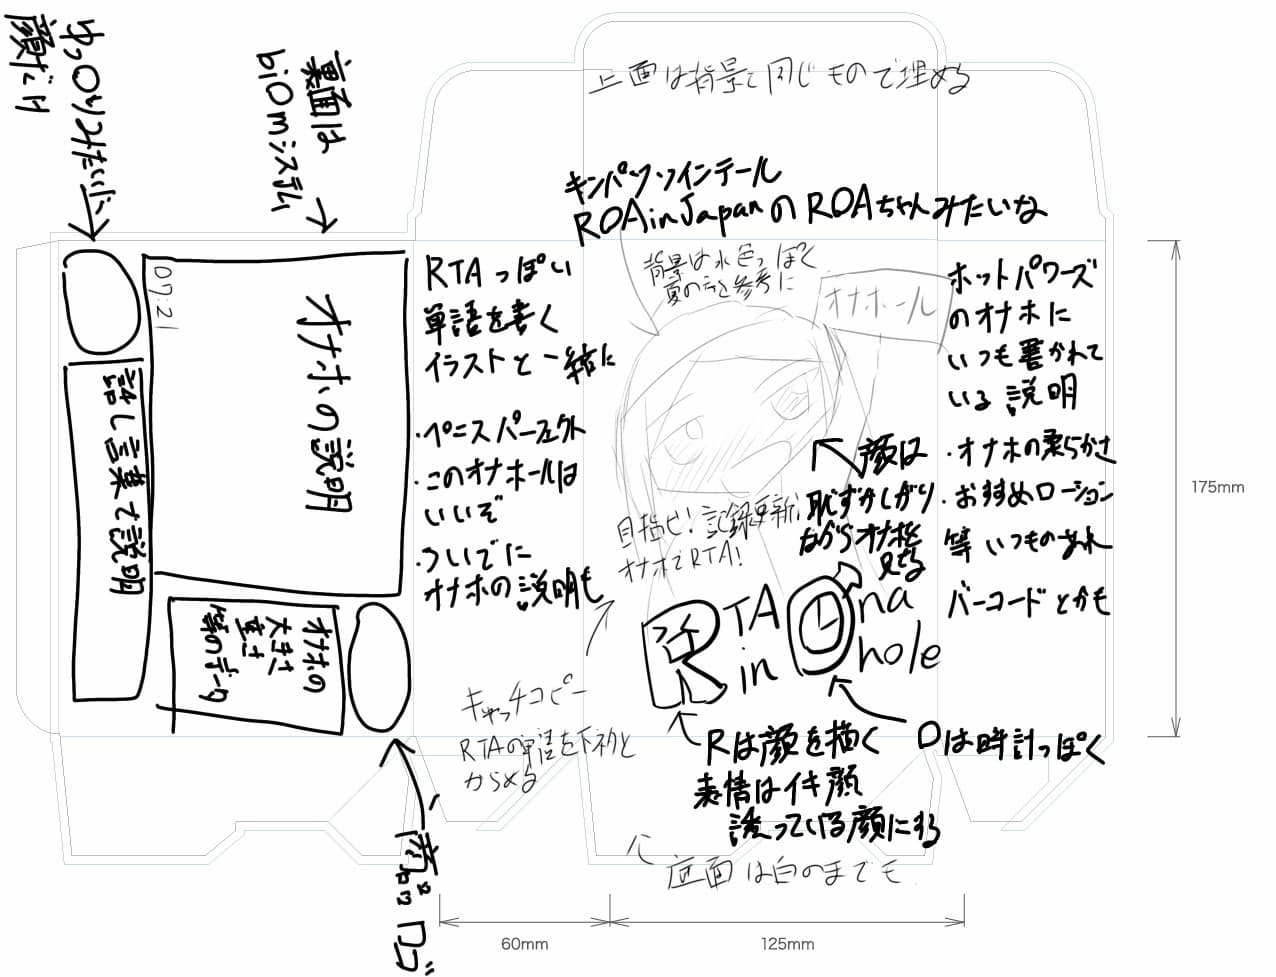 上面は背景と同じもので埋める
キンパツツインテール
ROAinJapanのROAちゃんみたいな
背景は水色っぽく
夏の方を参考に
オナホール
ゆっ〇りみたいに
顔だけ
裏面は
biimシステム
07:21
オナホの説明
話し言葉で説明
オナホの
大きさ
重さ
等のデータ
商品ロゴ
RTAっぽい
単語を書く
イラストと一緒に
・ペニスパーフェクト
・このオナホールは
いいぞ
・ついでに
オナホの説明も
ホットパワーズ
のオナホに
いつも書かれて
いる説明
・オナホの柔らかさ
・おすすめローション
等いつものあれ
バーコードとかも
顔は
恥ずかしがり
ながらオナホを
見せる
目指せ!記録更新!
オナホでRTA!
キャッチコピー
RTAの単語を下ネタと
からめる
RTA Ona
in hole
Rは顔を描く
表情はイキ顔
誘っている顔にする
Oは時計っぽく
底面は白のままでも
175mm
60mm
125mm